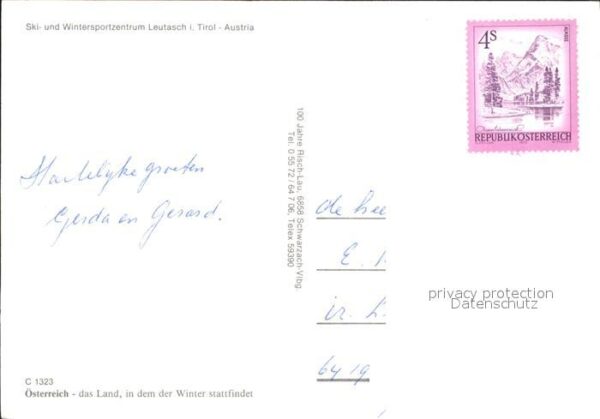 Ski- und Wintersportzentrum Leutasch i. Tirol - Austria
4S
ALMSEE
REPUBLIK ÖSTERREICH
100 Jahre Risch-Lau, 6858 Schwarzach-Vlbg.
Tel: 0 55 72 / 64 7 06, Telex 59390
Hartelijke groeten
Gerda en Gerard.
de hee
E.
ir. L.
6419
privacy protection
Datenschutz
C 1323
Österreich - das Land, in dem der Winter stattfindet